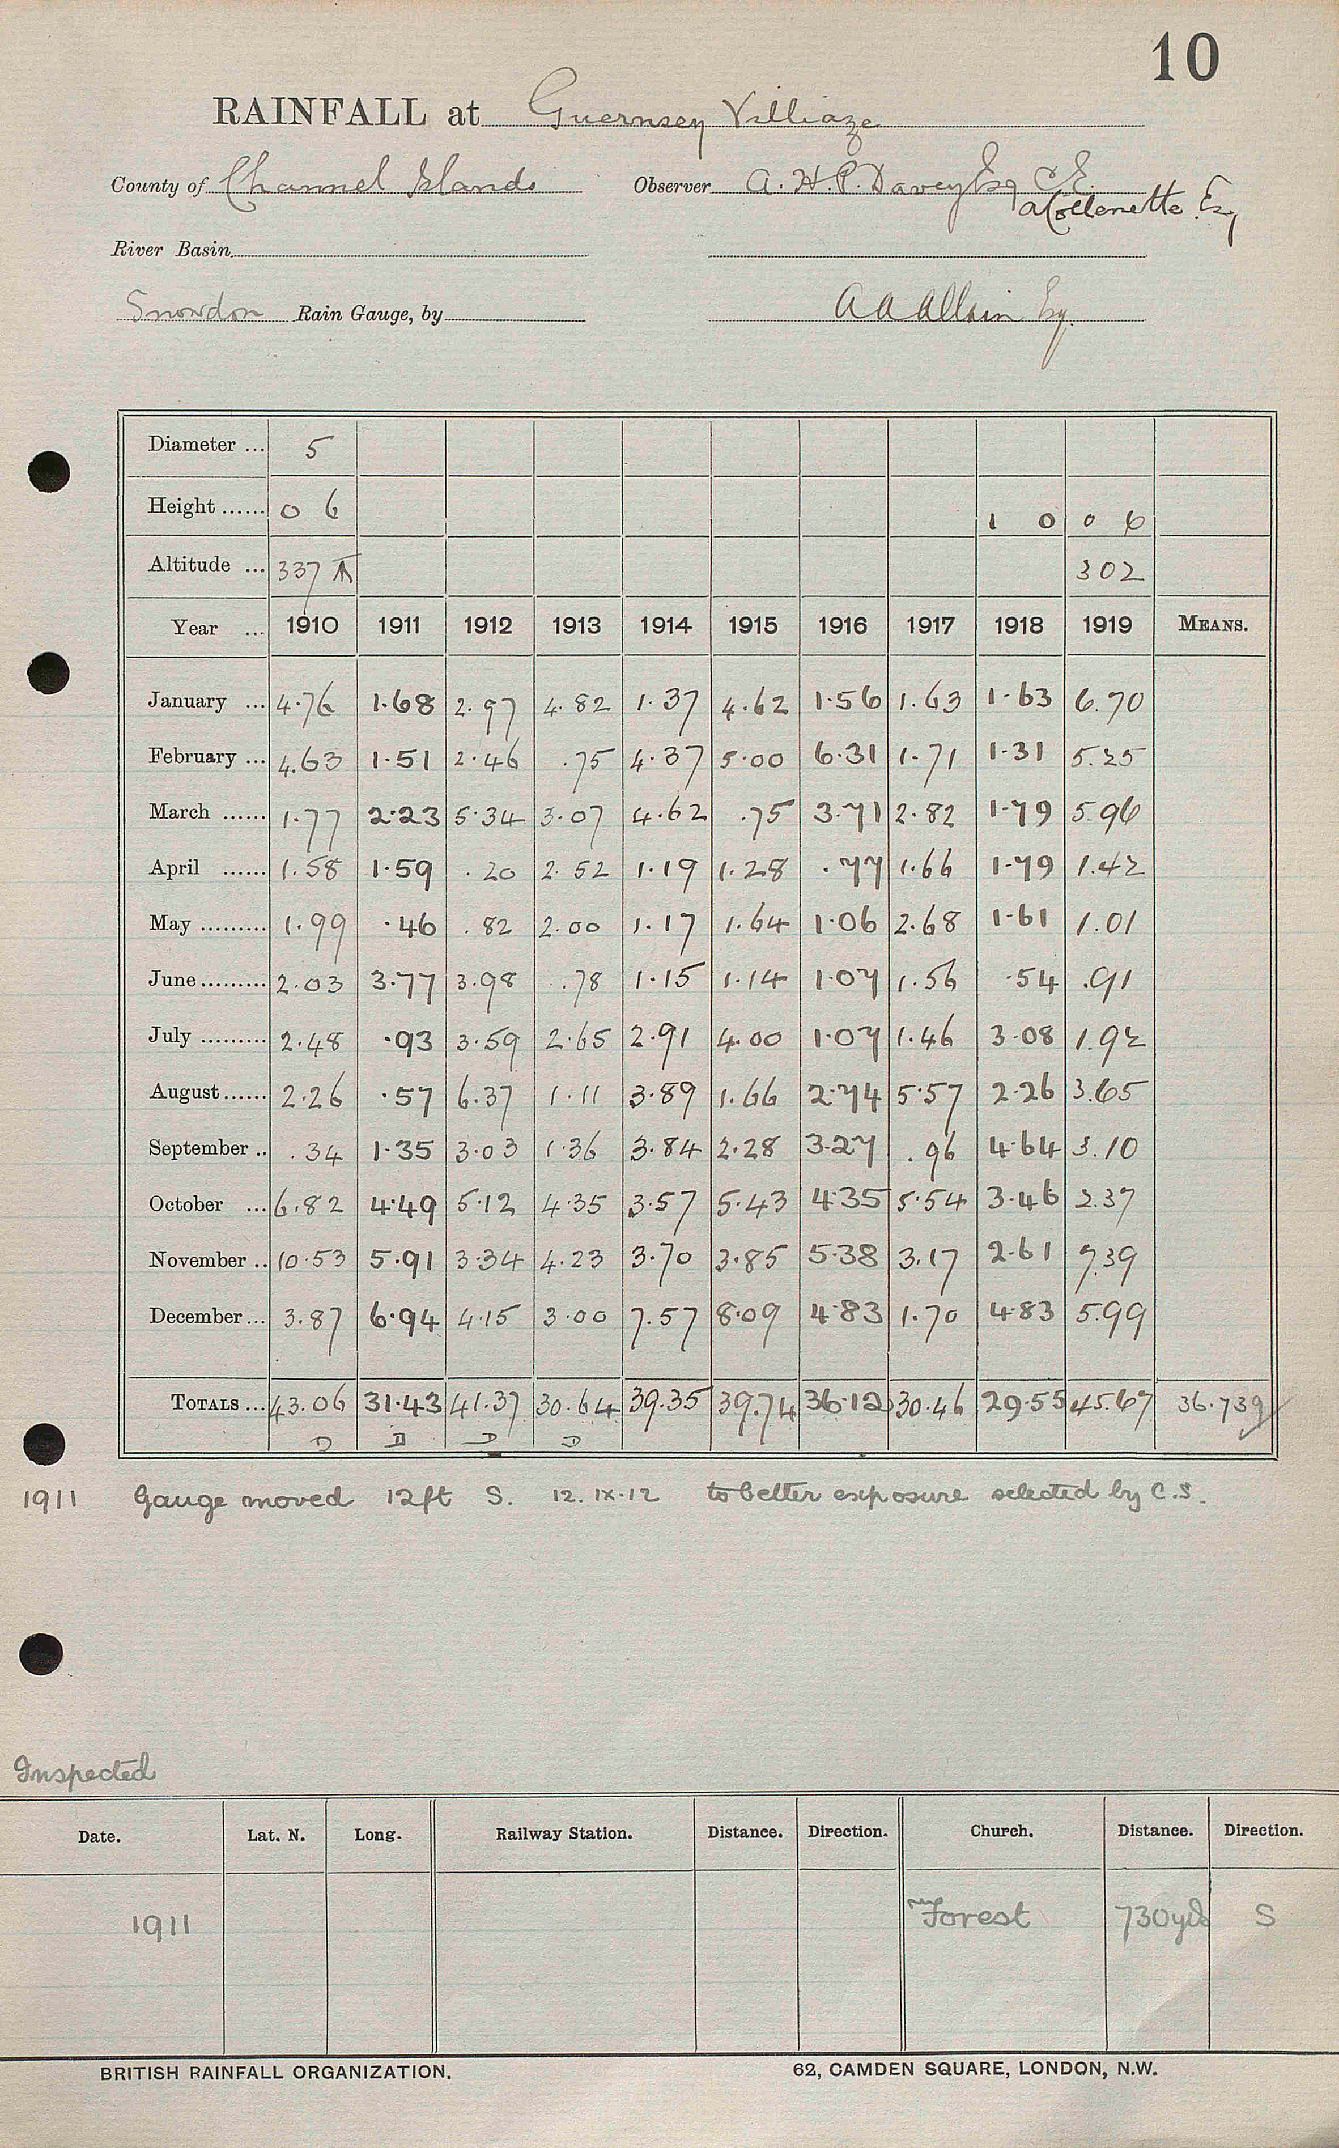 10
RAINFALL at Guernsey Villiaze
County of Channel Islands Observer A. H. P. Davey Esq C.E.
A Collenette Esq
River Basin
Snowdon Rain Gauge, by A A Allain Esq.
Diameter ... 5
Height ...... 0 6 1 0 0 6
Altitude ... 337 302
Year ... 1910 1911 1912 1913 1914 1915 1916 1917 1918 1919 MEANS.
January ... 4.76 1.68 2.97 4.82 1.37 4.62 1.56 1.63 1.63 6.70
February ... 4.63 1.51 2.46 .75 4.37 5.00 6.31 1.71 1.31 5.25
March ...... 1.77 2.23 5.34 3.07 4.62 .75 3.71 2.82 1.79 5.96
April ...... 1.58 1.59 .20 2.52 1.19 1.28 .77 1.66 1.79 1.42
May ......... 1.99 .46 .82 2.00 1.17 1.64 1.06 2.68 1.61 1.01
June ......... 2.03 3.77 3.98 .78 1.15 1.14 1.07 1.56 .54 .91
July ......... 2.48 .93 3.59 2.65 2.91 4.00 1.07 1.46 3.08 1.92
August ...... 2.26 .57 6.37 1.11 3.89 1.66 2.74 5.57 2.26 3.65
September .. .34 1.35 3.03 1.36 3.84 2.28 3.27 .96 4.64 3.10
October ... 6.82 4.49 5.12 4.35 3.57 5.43 4.35 5.54 3.46 2.37
November .. 10.53 5.91 3.34 4.23 3.70 3.85 5.38 3.17 2.61 7.39
December ... 3.87 6.94 4.15 3.00 7.57 8.09 4.83 1.70 4.83 5.99
TOTALS ... 43.06 31.43 41.37 30.64 39.35 39.74 36.12 30.46 29.55 45.67 36.739
D D D D
1911 Gauge moved 12ft S. 12.IX.12 to better exposure selected by C.S.
Inspected
Date. Lat. N. Long. Railway Station. Distance. Direction. Church. Distance. Direction.
1911 Forest 730yds S
BRITISH RAINFALL ORGANIZATION. 62, CAMDEN SQUARE, LONDON, N.W.